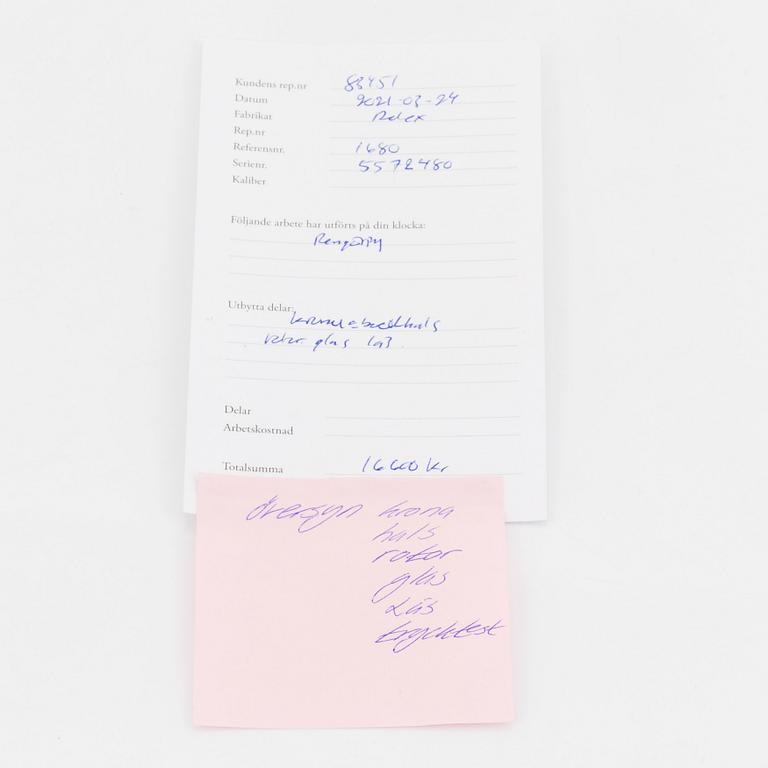 Kundens rep.nr 83451
Datum 2021-03-24
Fabrikat Rolex
Rep.nr
Referensnr. 1680
Serienr. 5572480
Kaliber
Följande arbete har utförts på din klocka:
Utbytta delar:
rotor glas lås
Delar
Arbetskostnad
Totalsumma 16600 kr
översyn krona
hals
rotor
glas
Lås
trycktest